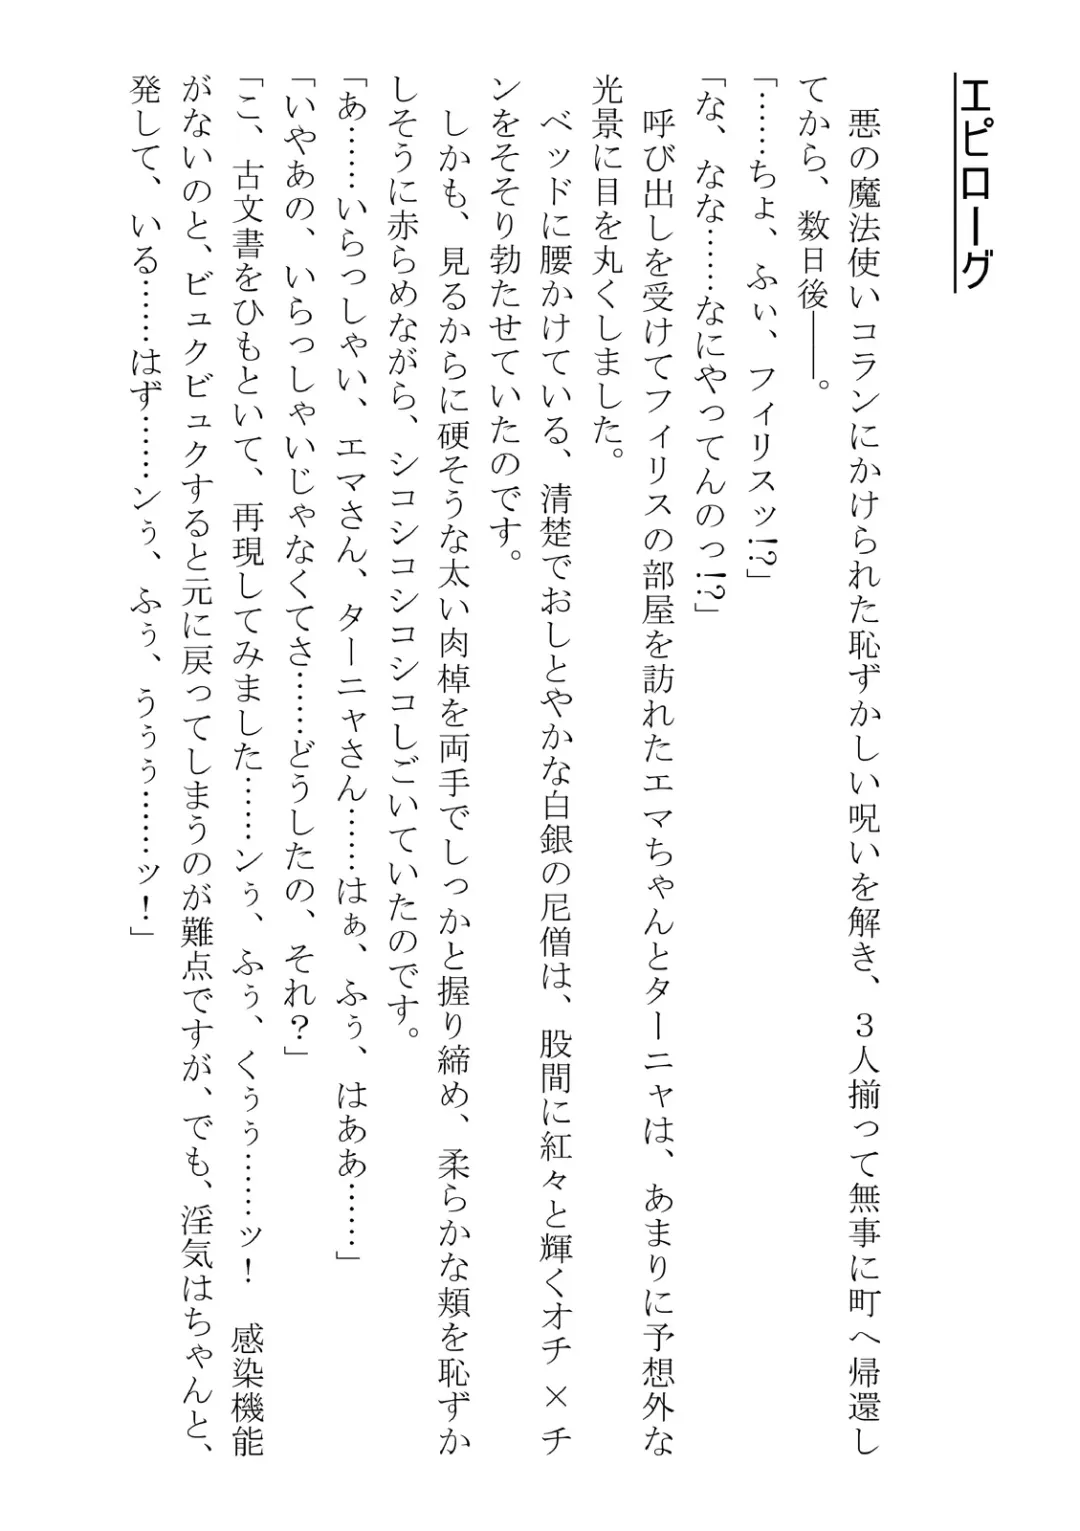 エピローグ
　悪の魔法使いコランにかけられた恥ずかしい呪いを解き、３人揃って無事に町へ帰還し
てから、数日後――。
「……ちょ、ふぃ、フィリスッ!?」
「な、なな……なにやってんのっ!?」
　呼び出しを受けてフィリスの部屋を訪れたエマちゃんとターニャは、あまりに予想外な
光景に目を丸くしました。
　ベッドに腰かけている、清楚でおしとやかな白銀の尼僧は、股間に紅々と輝くオチ×チ
ンをそそり勃たせていたのです。
　しかも、見るからに硬そうな太い肉棹を両手でしっかと握り締め、柔らかな頬を恥ずか
しそうに赤らめながら、シコシコシコシコしごいていたのです。
「あ……いらっしゃい、エマさん、ターニャさん……はぁ、ふぅ、はああ……」
「いやあの、いらっしゃいじゃなくてさ……どうしたの、それ？」
「こ、古文書をひもといて、再現してみました……ンぅ、ふぅ、くぅぅ……ッ！　感染機能
がないのと、ビュクビュクすると元に戻ってしまうのが難点ですが、でも、淫気はちゃんと、
発して、いる……はず……ンぅ、ふぅ、うぅぅ……ッ！」